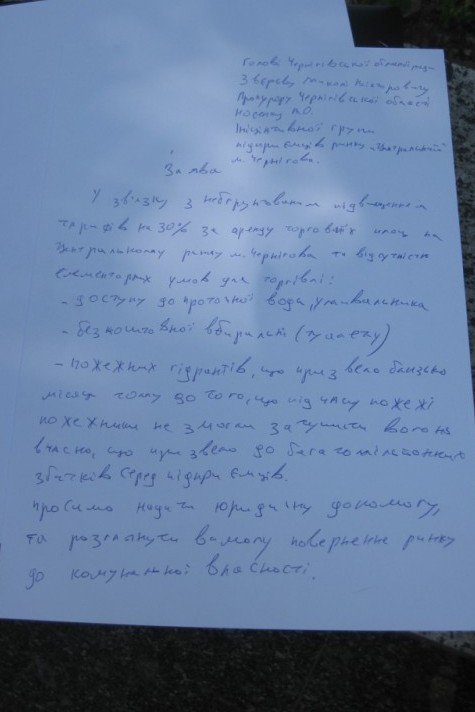 Голові Чернігівської обласної ради
Звєрєву Миколі Вікторовичу
Прокурору Чернігівської області
Носенку
Ініціативної групи
підприємців ринку "Центральний"
м. Чернігова.
Заява
У звязку з необгрунтованим підвищенням
тарифів на 30% за аренду торгових площ на
Центральному ринку м. Чернігова та відсутність
елементарних умов для торгівлі:
- доступу до проточної води, умивальника
- безкоштовної вбиральні (туалету)
- пожежних гідрантів, що призвело близько
місяць тому до того, що під час пожежі
пожежники не змогли загасити вогонь
вчасно, що призвело до багатомільйонних
збитків серед підприємців.
просимо надати юридичну допомогу,
та розглянути вимогу повернення ринку
до комунальної власності.